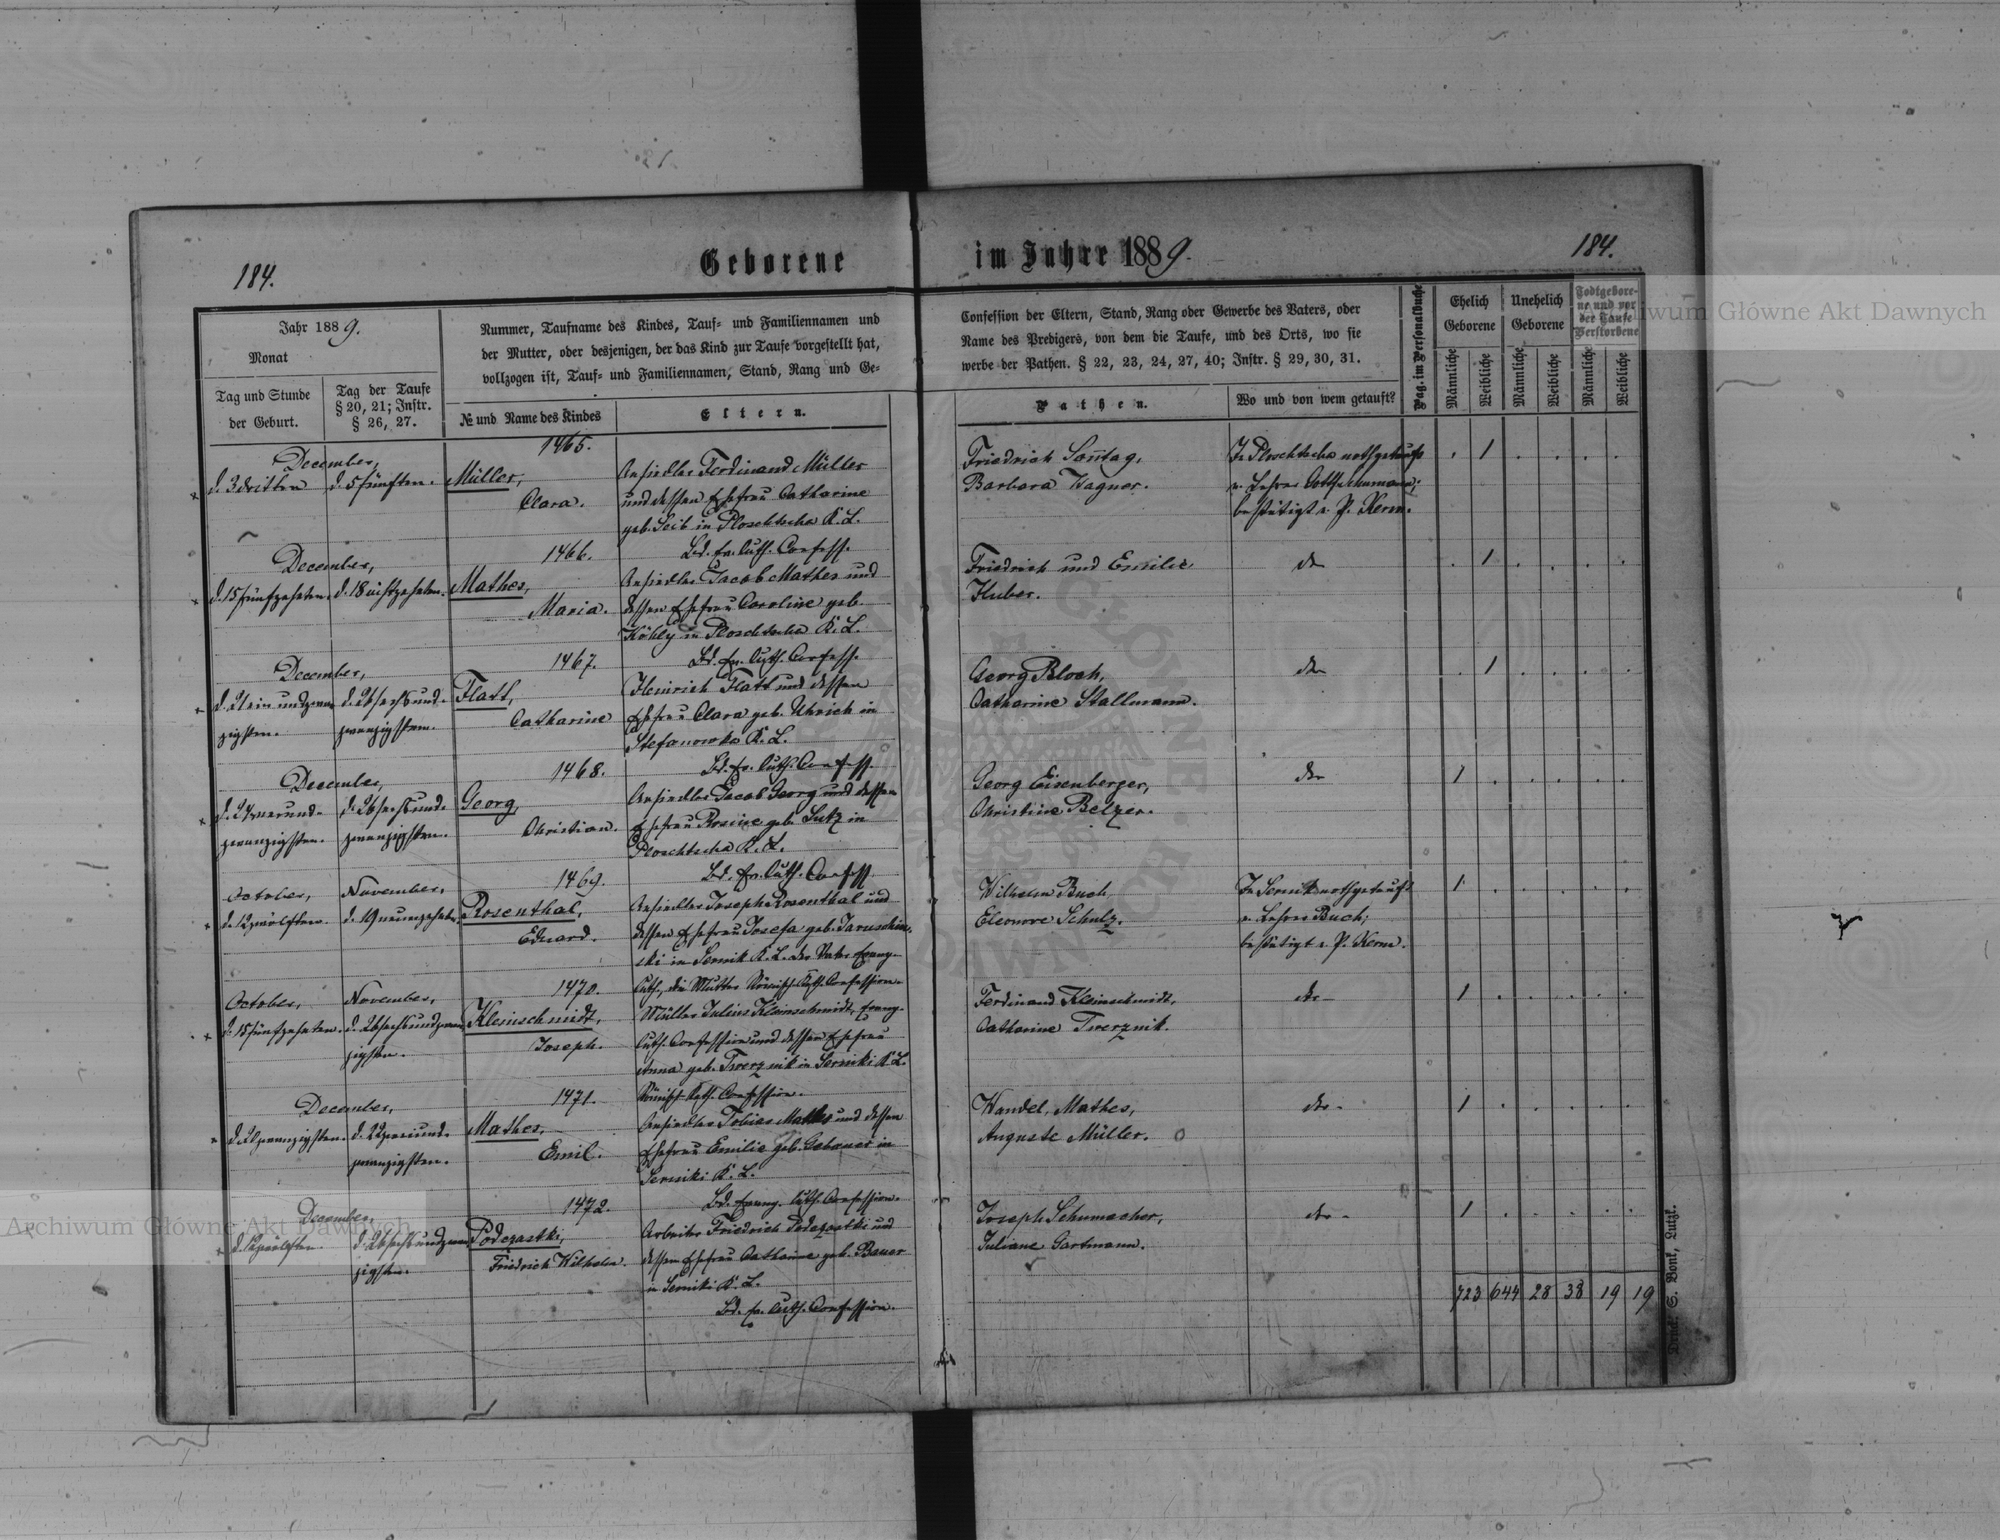 184.
Geborene
im Jahre 1889.
184.
Jahr 1889.
Monat
Tag und Stunde
der Geburt.
Tag der Taufe
§ 20, 21; Instr.
§ 26, 27.
Nummer, Taufname des Kindes, Tauf- und Familiennamen und
der Mutter, oder desjenigen, der das Kind zur Taufe vorgestellt hat,
vollzogen ist, Tauf- und Familiennamen, Stand, Rang und Ge-
№ und Name des Kindes
Eltern.
Confession der Eltern, Stand, Rang oder Gewerbe des Vaters, oder
Name des Predigers, von dem die Taufe, und des Orts, wo sie
werbe der Pathen. § 22, 23, 24, 27, 40; Instr. § 29, 30, 31.
Pathen.
Wo und von wem getauft?
Pag. im Personalbuche
Ehelich
Geborene
Unehelich
Geborene
Todtgebore-
ne und vor
der Taufe
Verstorbene
Männliche
Weibliche
Männliche
Weibliche
Männliche
Weibliche
December,
d. 3 dritten
d. 5 fünften.
1465.
Müller,
Clara.
Ansiedler Ferdinand Müller
und dessen Ehefrau Catharine
geb. Seib in Ploschtscha K. L.
Bd. ev. luth. Confess.
Friedrich Sonntag,
Barbara Wagner.
In Ploschtscha nothgetauft
v. Lehrer Gottf. Schumann;
bestätigt v. P. Kerm.
. 1 . . . .
December,
d. 15 fünfzehnten.
d. 18 achtzehnten.
1466.
Mathes,
Maria.
Ansiedler Jacob Mathes und
dessen Ehefrau Caroline geb.
Köhly in Ploschtscha K. L.
Bd. ev. luth. Confess.
Friedrich und Emilie
Huber.
do
. 1 . . . .
December,
d. 21 ein und zwan
zigsten.
d. 26 sechsund-
zwanzigsten.
1467.
Flatt,
Catharine
Heinrich Flatt und dessen
Ehefrau Clara geb. Uhrich in
Stefanowka K. L.
Bd. ev. luth. Confess.
Georg Bloch,
Catharine Stallmann.
do
. 1 . . . .
December,
zwanzigsten.
d. 26 sechsund-
zwanzigsten.
1468.
Georg,
Christian.
Ansiedler Jacob Georg und dessen
Ehefrau Rosine geb. Lutz in
Ploschtscha K. L.
Bd. ev. luth. Confess.
Georg Eisenberger,
Christine Belzer.
do
1 . . . . .
October,
d. 12 zwölften.
November,
d. 19 neunzehnten.
1469.
Rosenthal,
Eduard.
Ansiedler Joseph Rosenthal und
dessen Ehefrau Josefa geb. Jaruschin-
ski in Sernik K. L. der Vater Evang.
luth., die Mutter Römisch Kath. Confession.
Wilhelm Buch
Eleonore Schulz.
In Sernik nothgetauft
v. Lehrer Buch;
bestätigt v. P. Kerm.
1 . . . . .
October,
d. 15 fünfzehnten.
November,
d. 26 sechsundzwan
zigsten.
1470.
Kleinschmidt,
Joseph.
Müller Julius Kleinschmidt, Evang.
luth. Confession und dessen Ehefrau
Anna geb. Twerznik in Serniki K. L.
Römisch Kath. Confession.
Ferdinand Kleinschmidt,
Catharine Twerznik.
do-
1 . . . . .
December,
d. 20 zwanzigsten.
d. 22 zweiund-
zwanzigsten.
1471.
Mathes,
Emil.
Ansiedler Tobias Mathes und dessen
Ehefrau Emilie geb. Gebauer in
Serniki K. L.
Bd. Evang. luth. Confession.
Wandel, Mathes,
Auguste Müller.
do-
1 . . . . .
December,
d. 12 zwölften.
d. 26 sechsundzwan
zigsten.
1472.
Podezastki,
Friedrich Wilhelm.
Arbeiter Friedrich Podezastki und
dessen Ehefrau Catharine geb. Bauer
in Serniki K. L.
Bd. ev. luth. Confession.
Joseph Schumacher,
Juliane Gartmann.
do-
1 . . . . .
723 644 28 38 19 19
Druck. S. Bonk, Lutzk.
Archiwum Główne Akt Dawnych
Archiwum Główne Akt Dawnych